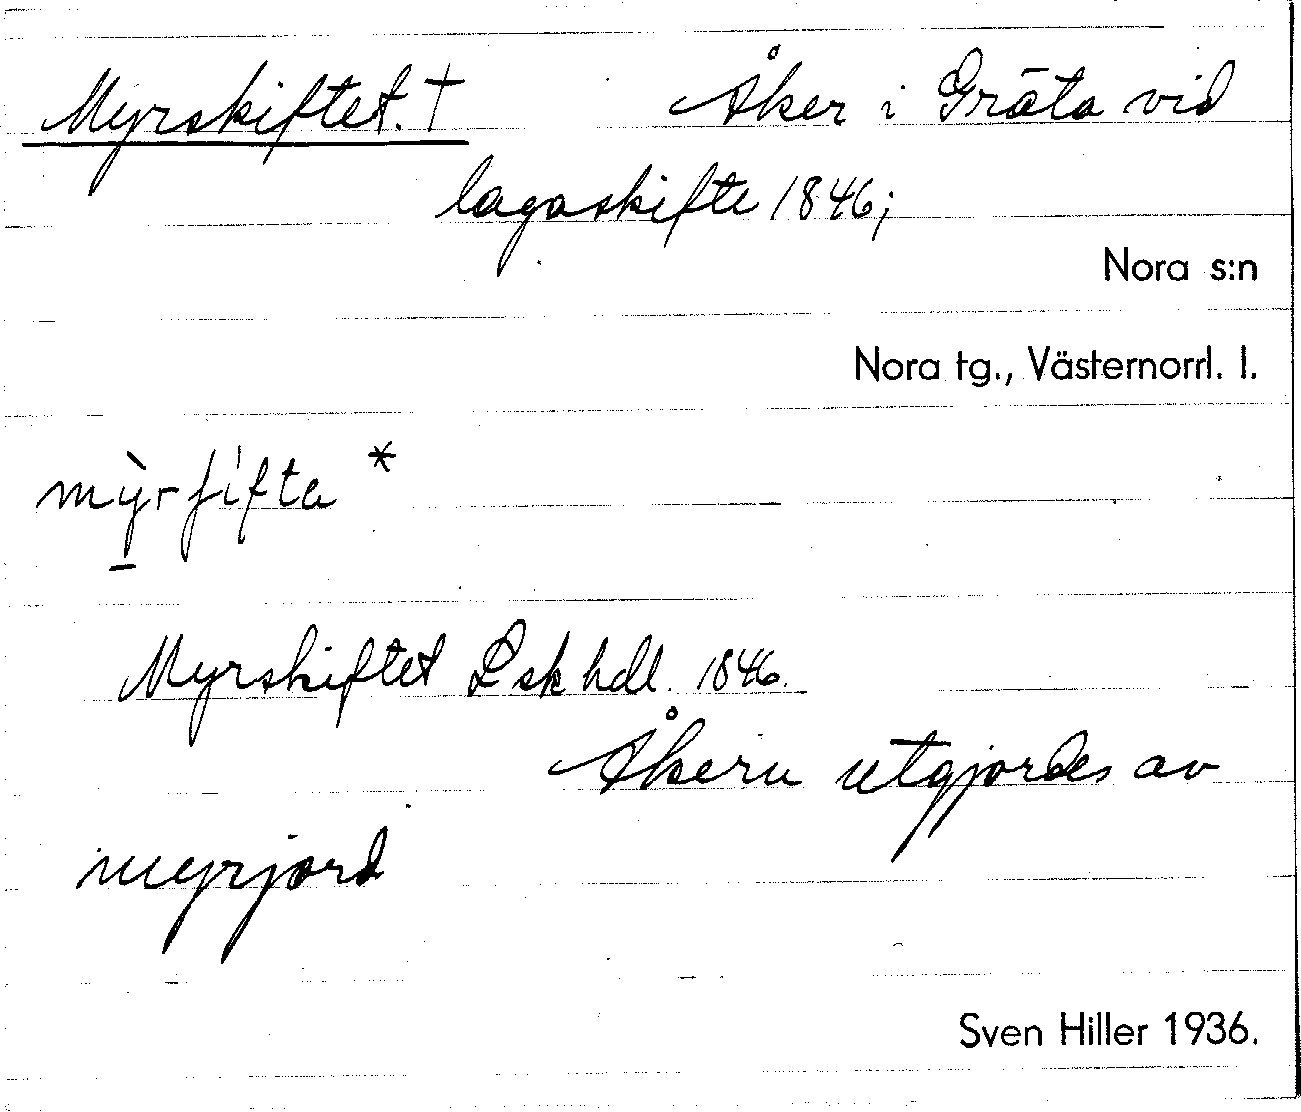 Myrskiftet. † Åker i Gräta vid
lagaskifte 1846;
Nora s:n
Nora tg., Västernorrl. l.
mỳ̱rʃifta *
Myrskiftet Lsk hdl. 1846.
Åkern utgjordes av
myrjord
Sven Hiller 1936.